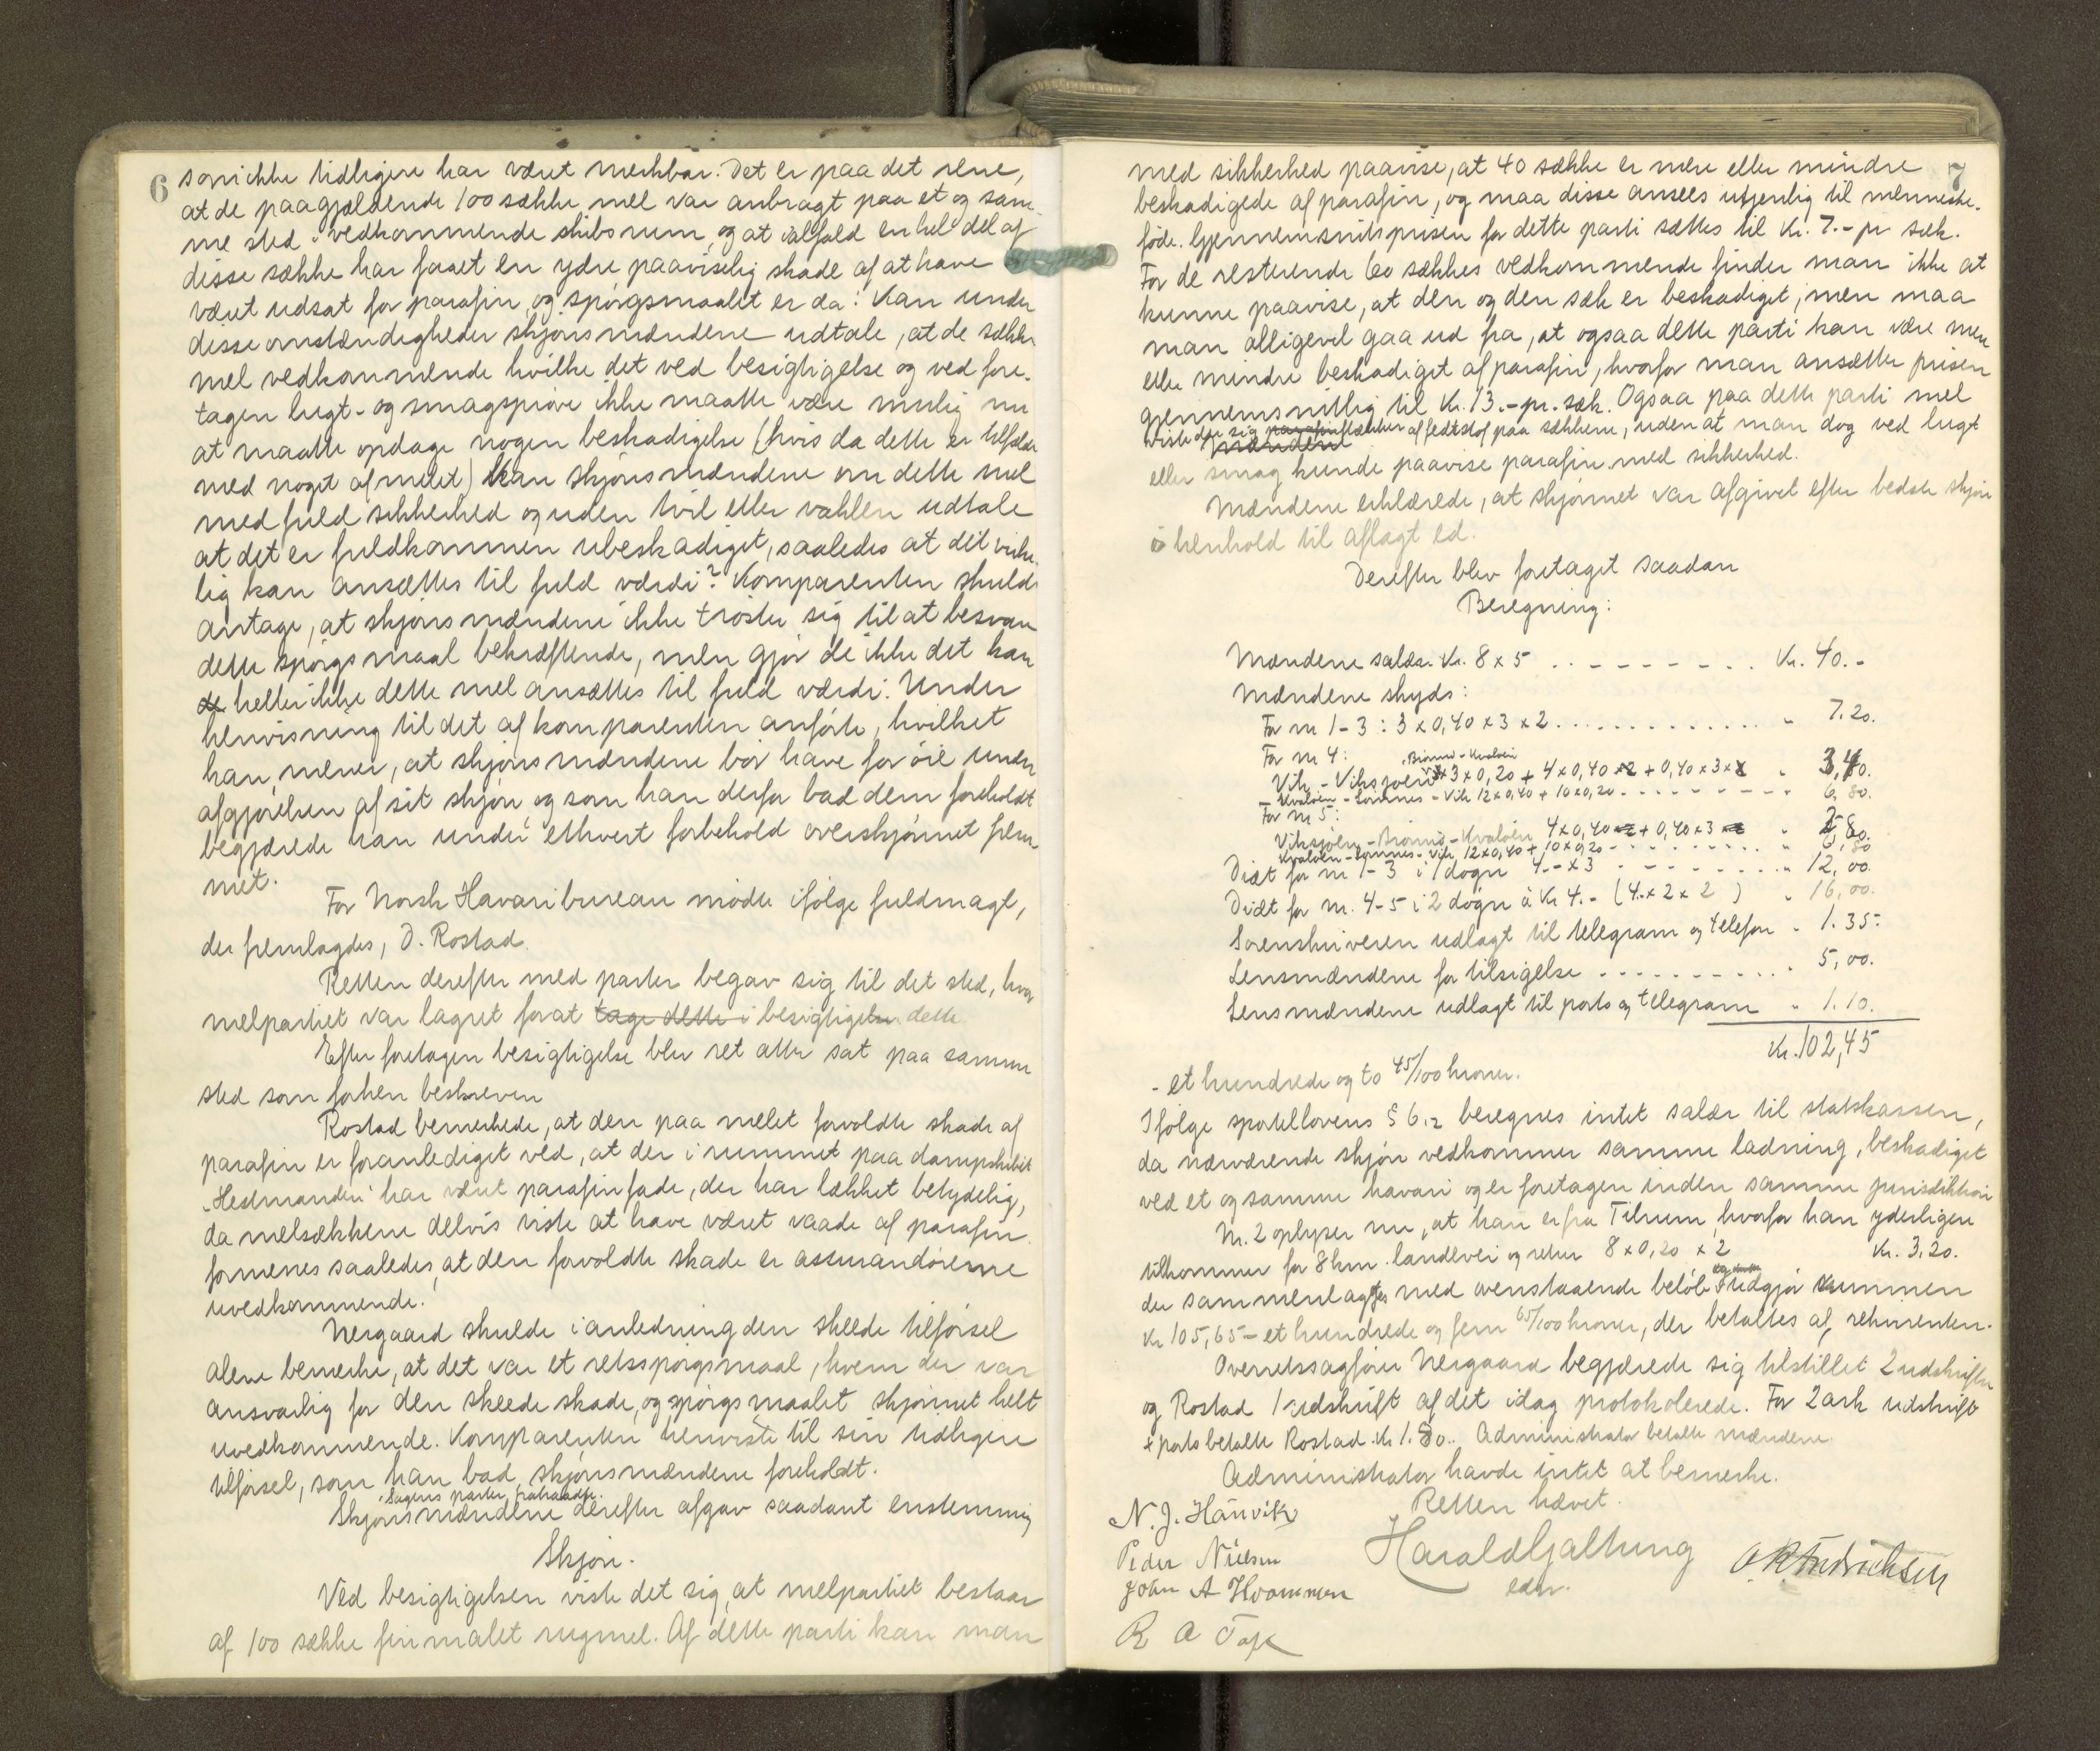 6
som ikke tidligere har været merkbar. Det er paa det rene,
at de paagjældende 100 sække mel var anbragt paa et og sam-
me sted i vedkommende skibsrum, og at ialfald en hel del af
disse sække har faaet en ydre paaviselig skade af at have
været udsat for parafin, og spørgsmaalet er da: Kan under
disse omstændigheder skjønsmændene udtale, at de sække
mel vedkommende hvilke det ved besigtigelse og ved fore-
tagen lugt- og smagsprøve ikke maatte være mulig nu
at maatte opdage nogen beskadigelse (hvis da dette er tilfælde
med noget af melet) kan skjønsmændene om dette mel
med fuld sikkerhed og uden tvil eller vaklen udtale
at det er fuldkommen ubeskadiget, saaledes at det virke-
lig kan ansættes til fuld værdi? Komparenten skulde
antage, at skjønsmændene ikke trøster sig til at besvare
dette spørgsmaal bekræftende, men gjør de ikke det kan
de heller ikke dette mel ansættes til fuld værdi. Under
henvisning til det af komparenten anførte, hvilket
han mener, at skjønsmændene bør have for øie under
afgjørelsen af sit skjøn, og som han derfor bad dem foreholdt
begjærede han under ethvert forbehold overskjønnet frem-
met.
For Norsk Havaribureau mødte ifølge fuldmagt,
der fremlagdes, D. Rostad.
Retten derefter med parter begav sig til det sted, hvor
melpartiet var lagret forat tage dette i besigtigelse dette.
Efter foretagen besigtigelse blev ret atter sat paa samme
sted som forhen beskreven
Rostad bemerkede, at den paa melet forvoldte skade af
parafin er foranlediget ved, at der i rummet paa dampskibet
"Hestmanden" har været parafinfade, der har lækket betydelig,
da melsækkene delvis viste at have været vaade af parafin.
formenes saaledes, at den forvoldte skade er assurandørerne
uvedkommende.
Nergaard skulde i anledning den skeede tilførsel
alene bemerke, at det var et retsspørgsmaal, hvem der var
ansvarlig for den skeede skade, og spørgsmaalet skjønnet helt
uvedkommende. Komparenten henviste til sin tidligere
tilførsel, som han bad skjønsmændene foreholdt.
Sagens parter fratraadte.
Skjønsmændene derefter afgav saadant enstemmig
Skjøn.
Ved besigtigelsen viste det sig, at melpartiet bestaar
af 100 sække finmalet rugmel. Af dette parti kan man
7
med sikkerhed paavise, at 40 sække er mere eller mindre
beskadigede af parafin, og maa disse ansees utjenlig til menneske-
føde. Gjennemsnitsprisen for dette parti sættes til Kr. 7.- pr sæk.
For de resterende 60 sækkes vedkommende finder man ikke at
kunne paavise, at den og den sæk er beskadiget, men maa
man alligevel gaa ud fra, at ogsaa dette parti kan være mere
eller mindre beskadiget af parafin, hvorfor man ansætter prisen
gjennemsnitlig til Kr. 13.- pr. sæk. Ogsaa paa dette parti mel
viste der sig parafinflækker af fedtstof paa sækkene, uden at man dog ved lugt
Mændene
eller smag kunde paavise parafin med sikkerhed.
Mændene erklærede, at skjønnet var afgivet efter bedste skjøn
i henhold til aflagt ed.
Derefter blev foretaget saadan
Beregning:
Mændene salær Kr. 8 x 5 . . - - - - - - - . Kr. 40.-
Mændene skyds:
For nr 1-3: 3 x 0,40 x 3 x 2 . . . . . . . . . . . . . " 7.20.
For nr 4: Brønnø-Kvaløen
Vik - Viksjøen 3 x 0,20 + 4 x 0,40 x 2 + 0,40 x 3 x " 3,40.
- Kvaløen - Sømnes - Vik 12 x 0,40 + 10 x 0,20 - - - - - - - - " 6,80.
For nr 5:
Viksjøen - Brønnø - Kvaløen 4 x 0,40 x 2 + 0,40 x 3 x 2 " 2,80.
Kvaløen - Sømnes - Vik 12 x 0,40 + 10 x 0,20 - - . . . . . . " 6,80
Diæt for nr 1-3 i 1 døgn 4.- x 3 - - - - - - - " 12,00.
Diæt for nr. 4-5 i 2 døgn à Kr 4.- (4 x 2 x 2) " 16,00.
Sorenskriveren udlagt til telegram og telefon " 1.35.
Lensmændene for tilsigelse - - - - - - - - - - " 5,00.
Lensmændene udlagt til porto og telegram " 1.10.
Kr. 102,45
- et hundrede og to 45/100 kroner.
Ifølge sportellovens § 6,2 beregnes intet salær til statskassen,
da nærværende skjøn vedkommer samme ladning, beskadiget
ved et og samme havari og er foretagen inden samme jurisdiktion
Nr. 2 oplyser nu, at han er fra Tilrem, hvorfor han yderligere
tilkommer for 8 km. landevei og retur 8 x 0,20 x 2 Kr. 3,20.
der sammenlagt med ovenstaaende beløb udgjør summen
Kr 105,65 - et hundrede og fem 65/100 kroner, der betaltes af rekvirenten.
Overretssagfører Nergaard begjærede sig tilstillet 2 udskrifter
og Rostad 1 udskrift af det idag protokolerede. For 2 ark udskrift
+ porto betalte Rostad Kr 1.80. Administrator betalte mændene.
Administrator havde intet at bemerke.
Retten hævet.
N. J. Hanvik
Peder Nielsen
John A
R A
Harald Galtung
edsv.
O. R. Fredrichsen